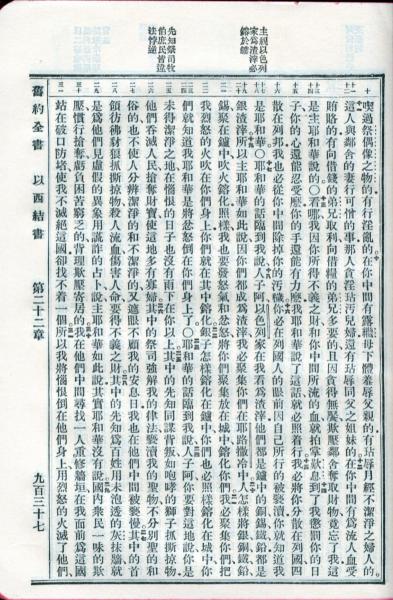 主視以色列
家爲渣滓必
鎔於爐
先知祭司牧
伯庶民皆違
法悖逆
喫過祭偶像之物的有行淫亂的在你中間有露繼母下體羞辱父親的有玷辱月經不潔淨之婦人的
這人與鄰舍的妻行可憎的事那人貪淫玷汚兒婦還有玷辱同父之姐妹的在你中間有爲流人血受
賄賂的有向借錢的弟兄取利向借糧的弟兄多要的且因貪得無厭欺壓鄰舍奪取財物竟忘了我這
是主耶和華說的〇看哪我因你所得不義之財和你中間所流的血就拍掌歎息到了我懲罰你的日
子你的心還能忍受麼你的手還能有力麼我耶和華說了這話就必照着行我必將你分散在列國四
散在列邦我也必從你中間除掉你的汚穢你必在列國人的眼前因自己所行的被褻瀆你就知道我
是耶和華〇耶和華的話臨到我說人子阿以色列家在我看爲渣滓他們都是爐中的銅錫鐵鉛都是
銀渣滓所以主耶和華如此說因你們都成爲渣滓我必聚集你們在耶路撒冷中人怎樣將銀銅鐵鉛
錫聚在爐中吹火鎔化照樣我也要發怒氣和忿怒將你們聚集放在城中鎔化你們我必聚集你們把
我烈怒的火吹在你們身上你們就在其中鎔化銀子怎樣鎔化在爐中你們也必照樣鎔化在城中你
們就知道我耶和華是將忿怒倒在你們身上了〇耶和華的話臨到我說人子阿你要對這地說你是
未得潔淨之地在惱恨的日子也沒有雨下在你以上其中的先知同謀背叛如咆哮的獅子抓撕掠物
他們吞滅人民搶奪財寶使這地多有寡婦其中的祭司強解我的律法褻瀆我的聖物不分別聖的和
俗的也不使人分辨潔淨的和不潔淨的又遮眼不顧我的安息日我也在他們中間被褻慢其中的首
領彷彿豺狼抓撕掠物殺人流血傷害人命要得不義之財其中的先知爲百姓用未泡透的灰抹牆就
是爲他們見虛假的異象用謊詐的占卜說主耶和華如此說其實耶和華沒有說國內衆民一味的欺
壓慣行搶奪虧負困苦窮乏的背理欺壓寄居的我在他們中間尋找一人重修牆垣在我面前爲這國
站在破口防堵使我不滅絕這國卻找不着一個所以我將惱恨倒在他們身上用烈怒的火滅了他們
舊約全書 以西結書 第二十二章 九百三十七